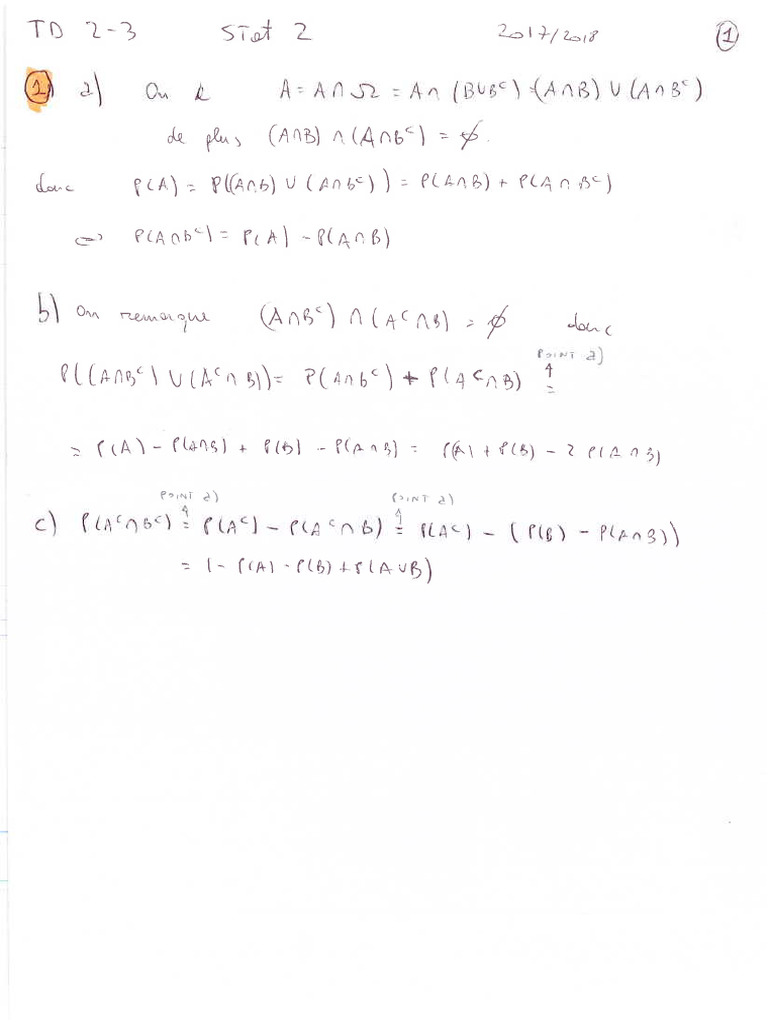 TD 2-3 Stat 2 2017/2018 1
1 a) On A = A∩Ω = A∩(B∪Bᶜ) = (A∩B) ∪ (A∩Bᶜ)
de plus, (A∩B) ∩ (A∩Bᶜ) = ∅.
donc P(A) = P((A∩B) ∪ (A∩Bᶜ)) = P(A∩B) + P(A∩Bᶜ)
⇔ P(A∩Bᶜ) = P(A) - P(A∩B)
b) On remarque (A∩Bᶜ) ∩ (Aᶜ∩B) = ∅ donc
POINT a)
P((A∩Bᶜ) ∪ (Aᶜ∩B)) = P(A∩Bᶜ) + P(Aᶜ∩B) =
= P(A) - P(A∩B) + P(B) - P(A∩B) = P(A) + P(B) - 2 P(A∩B)
POINT a) POINT a)
c) P(Aᶜ∩Bᶜ) = P(Aᶜ) - P(Aᶜ∩B) = P(Aᶜ) - (P(B) - P(A∩B))
= 1 - P(A) - P(B) + P(A∪B)